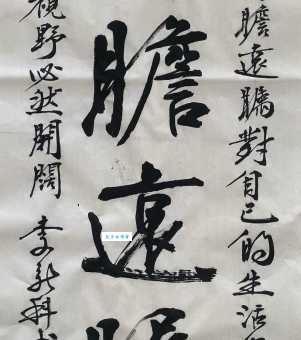 瞻遠矚對自己的生活
瞻遠
視野必然開闊 李新科